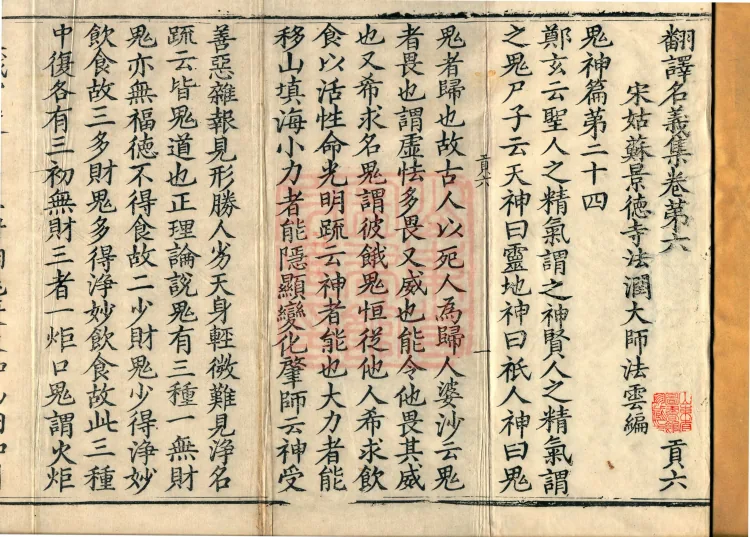 翻譯名義集卷第六
貢六
宋姑蘇景德寺法潤大師法雲編
鬼神篇第二十四
鄭玄云聖人之精氣謂之神賢人之精氣謂
之鬼尸子云天神曰靈地神曰祇人神曰鬼
鬼者歸也故古人以死人為歸人婆沙云鬼
者畏也謂虛怯多畏又威也能令他畏其威
也又希求名鬼謂彼餓鬼恒從他人希求飲
食以活性命光明疏云神者能也大力者能
移山填海小力者能隱顯變化肇師云神受
善惡雜報見形勝人劣天身輕微難見淨名
疏云皆鬼道也正理論說鬼有三種一無財
鬼亦無福德不得食故二少財鬼少得淨妙
飲食故三多財鬼多得淨妙飲食故此三種
中復各有三初無財三者一炬口鬼謂火炬
貢六
一